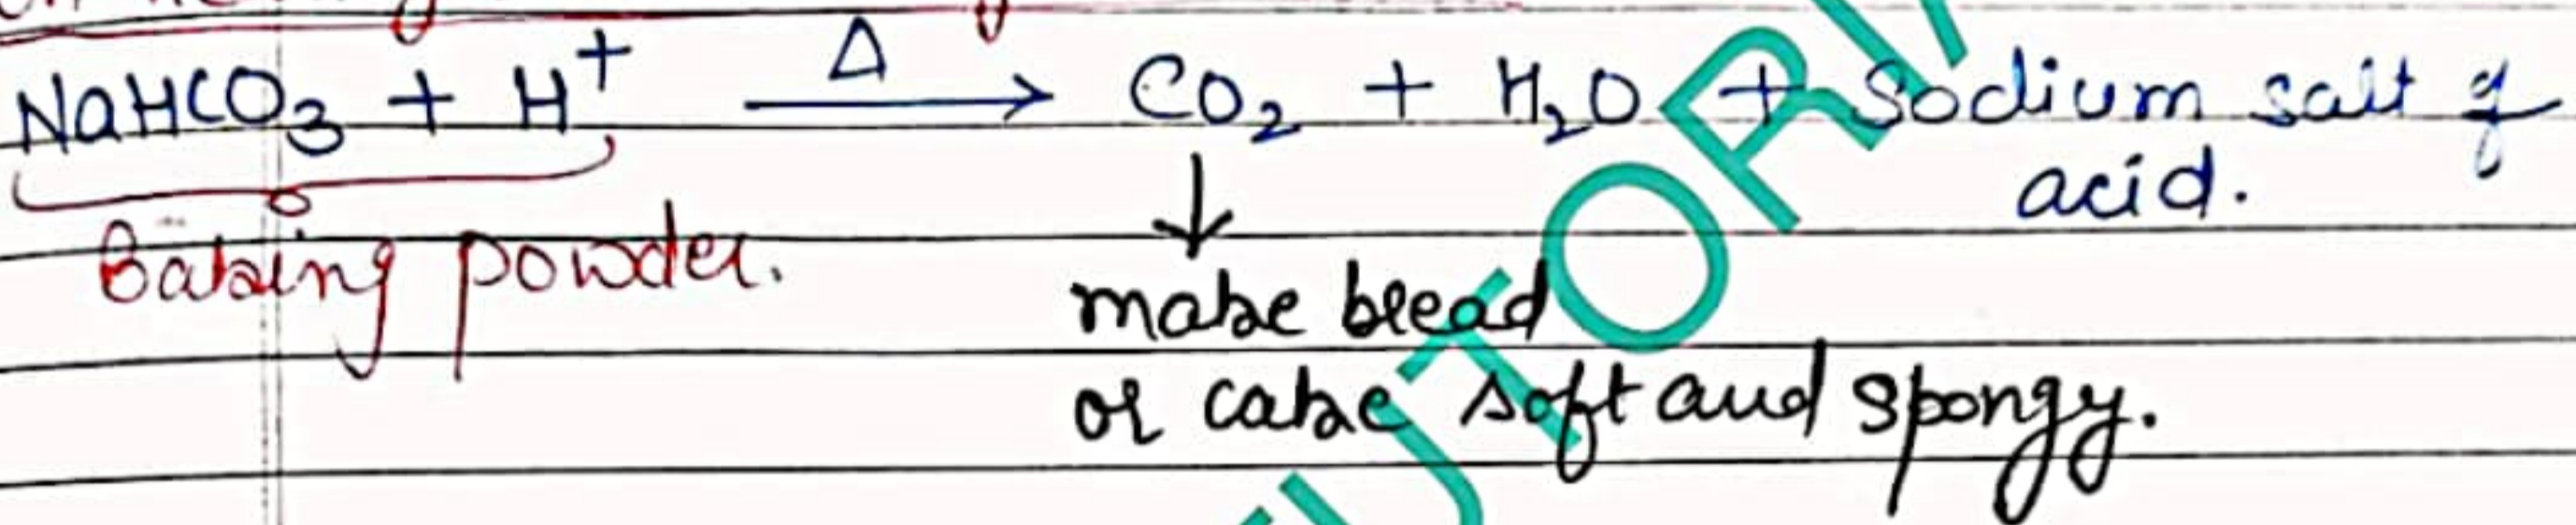 NaHCO₃ + H⁺ —Δ→ CO₂ + H₂O + Sodium salt of
acid.
Baking powder.
↓
make bread
or cake soft and spongy.
UTORIA